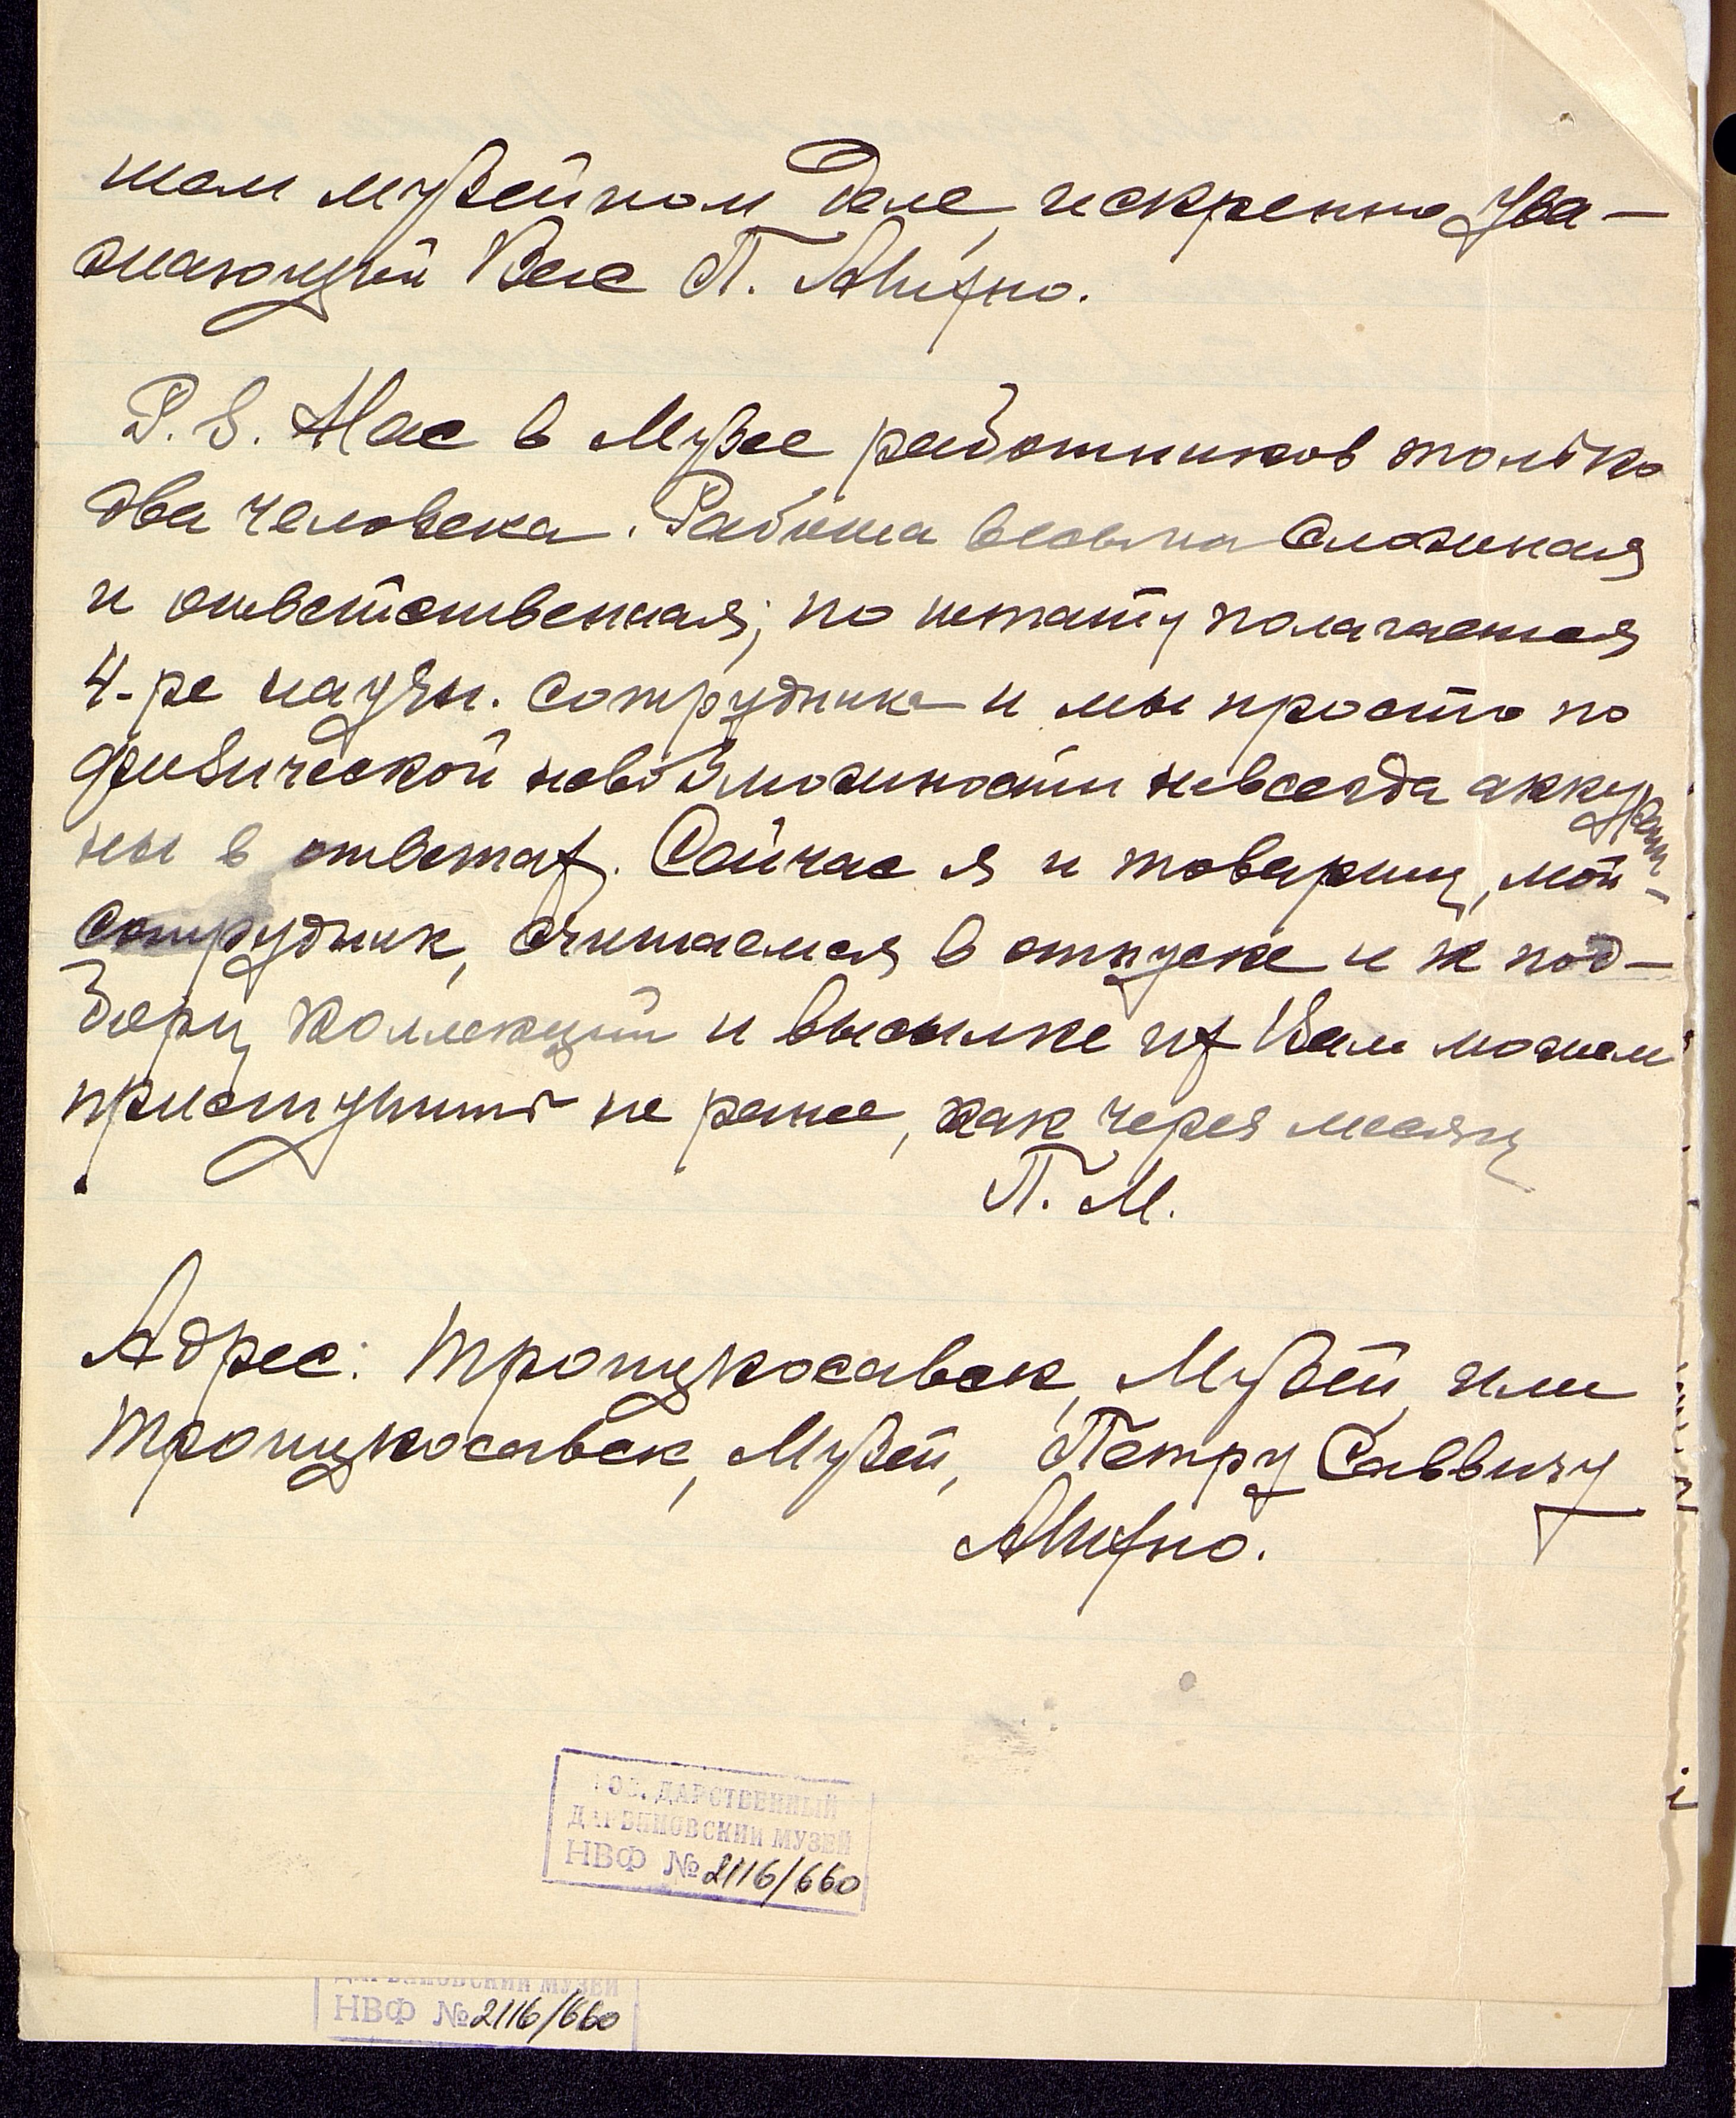 шем музейном деле, искренно ува-
жающий Вас П. Михно.
P.S. Нас в Музее работников только
два человека. Работа весьма сложная
и ответственная; по штату полагается
4-ре научн. сотрудника и мы просто по
физической невозможности невсегда аккурат-
ны в ответах. Сейчас я и товарищ, мой
сотрудник, считаемся в отпуске и к под-
бору коллекций и высылке их Вам можем
приступить не ранее, как через месяц
П. М.
Адрес: Троицкосавск, Музей или
Троицкосавск, Музей, Петру Саввичу
Михно.
ГОСУДАРСТВЕННЫЙ
ДАРВИНОВСКИЙ МУЗЕЙ
НВФ № 2116/660
ДАРВИНОВСКИЙ МУЗЕЙ
НВФ № 2116/660